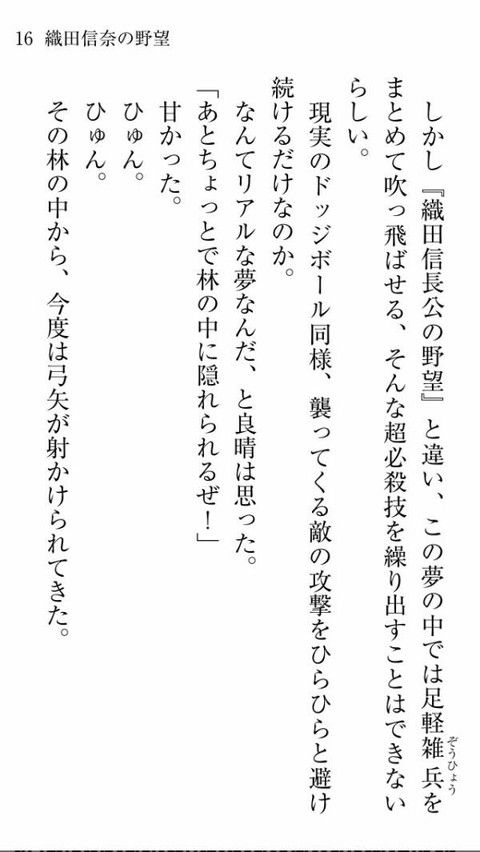 16 織田信奈の野望
しかし『織田信長公の野望』と違い、この夢の中では足軽雑兵を
ぞうひょう
まとめて吹っ飛ばせる、そんな超必殺技を繰り出すことはできない
らしい。
現実のドッジボール同様、襲ってくる敵の攻撃をひらひらと避け
続けるだけなのか。
なんてリアルな夢なんだ、と良晴は思った。
「あとちょっとで林の中に隠れられるぜ！」
甘かった。
ひゅん。
ひゅん。
その林の中から、今度は弓矢が射かけられてきた。